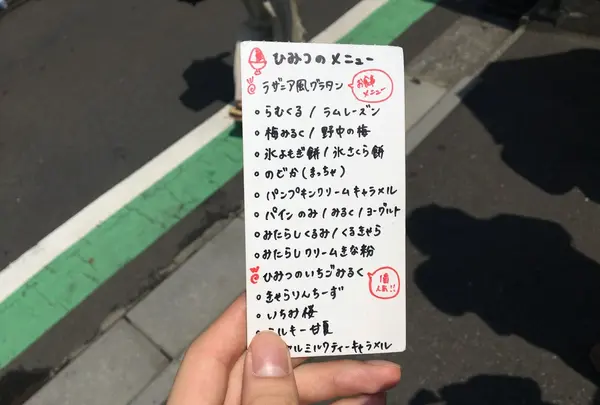 ひみつのメニュー
ラザニア風グラタン
お食事
メニュー
らむくる/ラムレーズン
梅みるく/野中の梅
氷よもぎ餅/氷さくら餅
のどか(まっちゃ)
パンプキンクリームキャラメル
パインのみ/みるく/ヨーグルト
みたらしくるみ/くるきゃら
みたらしクリームきな粉
ひみつのいちごみるく
1番
人気!!
きゃらりんちーず
いちみ桜
ミルキー甘夏
ルミルクティーキャラメル